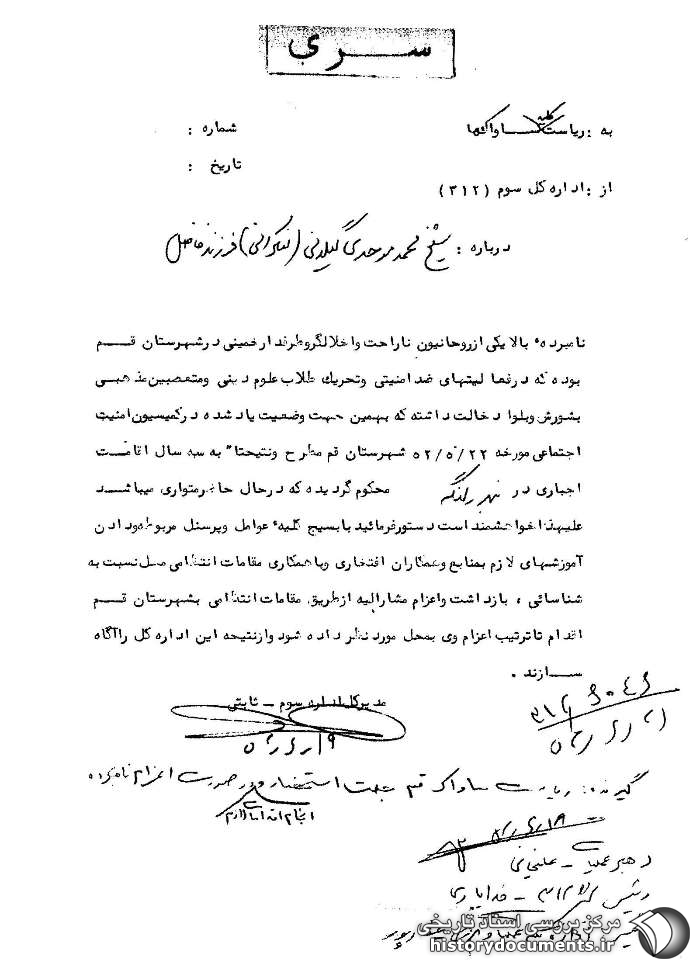 سری
به : ریاست کلیه ساواکها
شماره :
تاریخ :
از : اداره کل سوم (۳۱۲)
درباره : شیخ محمد موحدی گیلانی (لنکرانی) فرزند فاضل
نامبرده بالا یکی از روحانیون ناراحت و اخلالگر و طرفدار خمینی در شهرستان قم
بوده که در فعالیتهای ضد امنیتی و تحریك طلاب علوم دینی و متعصبین مذهبی
بشورش و بلوا دخالت داشته که بهمین جهت وضعیت یاد شده در کمیسیون امنیت
اجتماعی مورخه ۵۲/۵/۲۲ شهرستان قم مطرح و نتیجتا" به سه سال اقامت
اجباری در محکوم گردیده که در حال حاضر متواری میباشد
علیهذا خواهشمند است دستور فرمائید با بسیج کلیه عوامل و پرسنل مربوطه و دادن
آموزشهای لازم بمنابع و همکاران افتخاری و با همکاری مقامات انتظامی محل نسبت به
شناسائی ، بازداشت و اعزام مشارالیه از طریق مقامات انتظامی بشهرستان قم
اقدام تا ترتیب اعزام وی بمحل مورد نظر داده شود و از نتیجه این اداره کل را آگاه
سازند .
مدیر کل اداره سوم - ثابتی
گیرنده : ریاست ساواک قم جهت استحضار و در صورت اعزام نامبرده
انجام اقدامات لازم
رهبر عملیات -
رئیس
مرکز بررسی اسناد تاریخی
historydocuments.ir